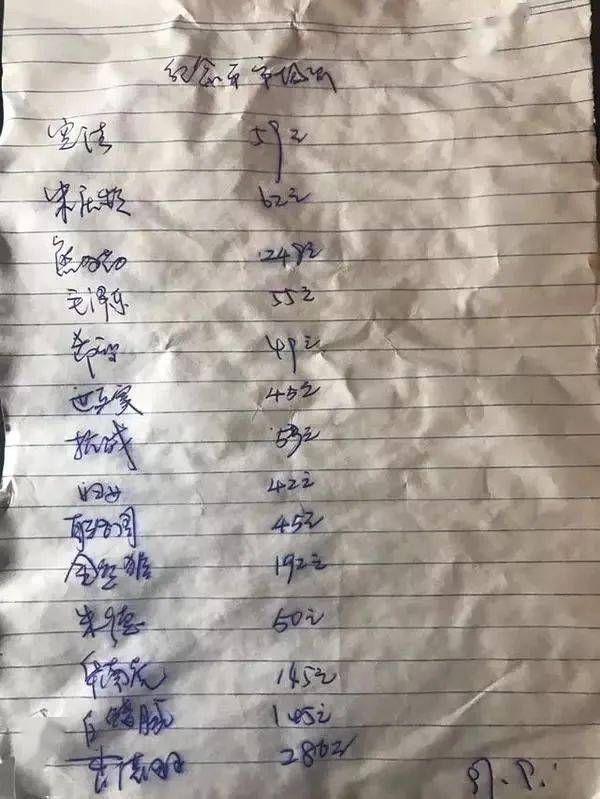 纪念币市场价
宪法 59元
宋庆龄 62元
熊猫 248元
毛泽东 55元
49元
45元
抗战 53元
妇女 42元
联合国 45元
金丝猴 192元
朱德 50元
华南虎 145元
白鳍豚 145元
286元